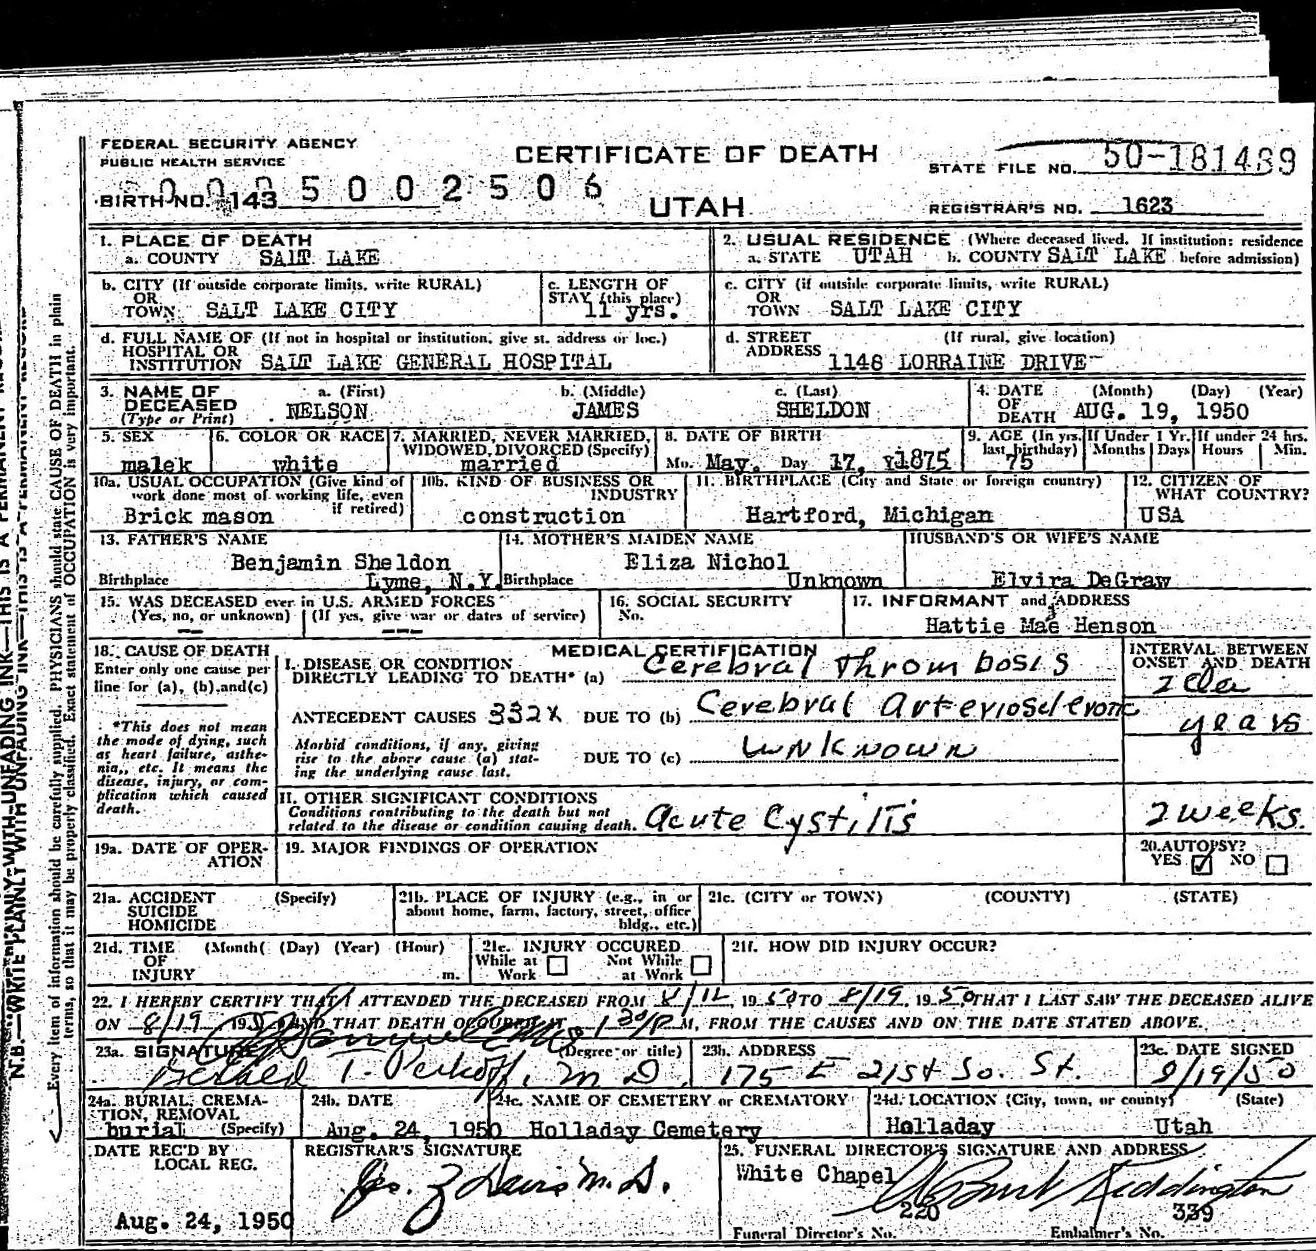 FEDERAL SECURITY AGENCY
PUBLIC HEALTH SERVICE
CERTIFICATE OF DEATH
STATE FILE NO. 50-181489
0005002506
BIRTH NO. 143
UTAH
REGISTRAR'S NO. 1623
1. PLACE OF DEATH
a. COUNTY SALT LAKE
2. USUAL RESIDENCE (Where deceased lived. If institution: residence before admission)
a. STATE UTAH b. COUNTY SALT LAKE
b. CITY (If outside corporate limits, write RURAL)
OR
TOWN SALT LAKE CITY
c. LENGTH OF
STAY (this place)
11 yrs.
c. CITY (if outside corporate limits, write RURAL)
OR
TOWN SALT LAKE CITY
d. FULL NAME OF (If not in hospital or institution, give st. address or loc.)
HOSPITAL OR
INSTITUTION SALT LAKE GENERAL HOSPITAL
d. STREET (If rural, give location)
ADDRESS 1148 LORRAINE DRIVE
3. NAME OF DECEASED
(Type or Print)
a. (First) b. (Middle) c. (Last)
NELSON JAMES SHELDON
4. DATE (Month) (Day) (Year)
OF
DEATH AUG. 19, 1950
5. SEX
malek
6. COLOR OR RACE
white
7. MARRIED, NEVER MARRIED,
WIDOWED, DIVORCED (Specify)
married
8. DATE OF BIRTH
Mo. May. Day 17, Y1875
9. AGE (In yrs. last birthday)
75
If Under 1 Yr.
Months Days
If under 24 hrs.
Hours Min.
10a. USUAL OCCUPATION (Give kind of
work done most of working life, even
if retired)
Brick mason
10b. KIND OF BUSINESS OR
INDUSTRY
construction
11. BIRTHPLACE (City and State or foreign country)
Hartford, Michigan
12. CITIZEN OF
WHAT COUNTRY?
USA
13. FATHER'S NAME
Benjamin Sheldon
Birthplace Lyme, N.Y.
14. MOTHER'S MAIDEN NAME
Eliza Nichol
Birthplace Unknown
HUSBAND'S OR WIFE'S NAME
Elvira DeGraw
15. WAS DECEASED ever in U.S. ARMED FORCES
(Yes, no, or unknown) (If yes, give war or dates of service)
-- ---
16. SOCIAL SECURITY
No.
17. INFORMANT and ADDRESS
Hattie Mae Henson
18. CAUSE OF DEATH
Enter only one cause per
line for (a), (b), and (c)
*This does not mean
the mode of dying, such
as heart failure, asthe-
nia, etc. It means the
disease, injury, or com-
plication which caused
death.
MEDICAL CERTIFICATION
I. DISEASE OR CONDITION
DIRECTLY LEADING TO DEATH* (a) Cerebral Thrombosis
ANTECEDENT CAUSES 332X DUE TO (b) Cerebral Arteriosclerotic
Morbid conditions, if any, giving
rise to the above cause (a) stat-
ing the underlying cause last.
DUE TO (c) unknown
II. OTHER SIGNIFICANT CONDITIONS
Conditions contributing to the death but not
related to the disease or condition causing death. Acute Cystitis
INTERVAL BETWEEN
ONSET AND DEATH
2 da
years
2 weeks.
19a. DATE OF OPER-
ATION
19. MAJOR FINDINGS OF OPERATION
20. AUTOPSY?
YES ☑ NO ☐
21a. ACCIDENT (Specify)
SUICIDE
HOMICIDE
21b. PLACE OF INJURY (e.g., in or
about home, farm, factory, street, office
bldg., etc.)
21c. (CITY or TOWN) (COUNTY) (STATE)
21d. TIME (Month) (Day) (Year) (Hour)
OF
INJURY m.
21e. INJURY OCCURED
While at Work ☐ Not While at Work ☐
21f. HOW DID INJURY OCCUR?
22. I HEREBY CERTIFY THAT I ATTENDED THE DECEASED FROM 8/12, 1950 TO 8/19, 1950 THAT I LAST SAW THE DECEASED ALIVE
ON 8/19 1950 AND THAT DEATH OCCURED AT 1 30/P M, FROM THE CAUSES AND ON THE DATE STATED ABOVE.
23a. SIGNATURE (Degree or title)
T. Perkoff, M D.
23b. ADDRESS
175 E 21st So. St.
23c. DATE SIGNED
8/19/50
24a. BURIAL, CREMA-
TION, REMOVAL
burial (Specify)
24b. DATE
Aug. 24, 1950
24c. NAME OF CEMETERY or CREMATORY
Holladay Cemetery
24d. LOCATION (City, town, or county) (State)
Holladay Utah
DATE REC'D BY
LOCAL REG.
Aug. 24, 1950
REGISTRAR'S SIGNATURE
Jos. Z Davis M.D.
25. FUNERAL DIRECTOR'S SIGNATURE AND ADDRESS
White Chapel
220 339
Funeral Director's No. Embalmer's No.
N.B.—WRITE PLAINLY WITH UNFADING INK—THIS IS A PERMANENT RECORD
Every item of information should be carefully supplied. PHYSICIANS should state CAUSE OF DEATH in plain
terms, so that it may be properly classified. Exact statement of OCCUPATION is very important.